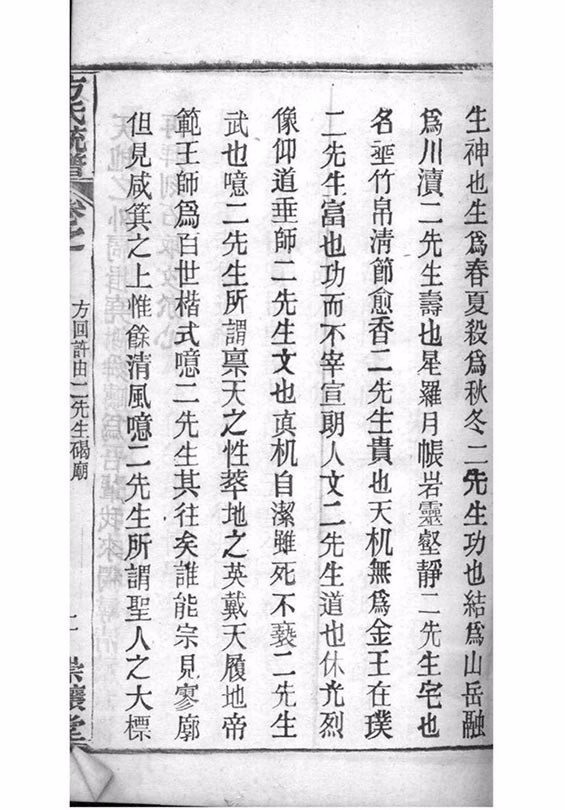 生神也生爲春夏殺爲秋冬二先生功也結爲山岳融
爲川瀆二先生壽也星羅月帳岩靈壑靜二先生宅也
名垂竹帛清節愈香二先生貴也天机無爲金王在璞
二先生富也功而不宰宣朗人文二先生道也休光烈
像仰道垂師二先生文也真机自潔雖死不褻二先生
武也噫二先生所謂禀天之性萃地之英戴天履地帝
範王師爲百世楷式噫二先生其往矣誰能宗見寥廓
但見咸箕之上惟餘清風噫二先生所謂聖人之大標
方氏統譜
方回許由二先生碣廟